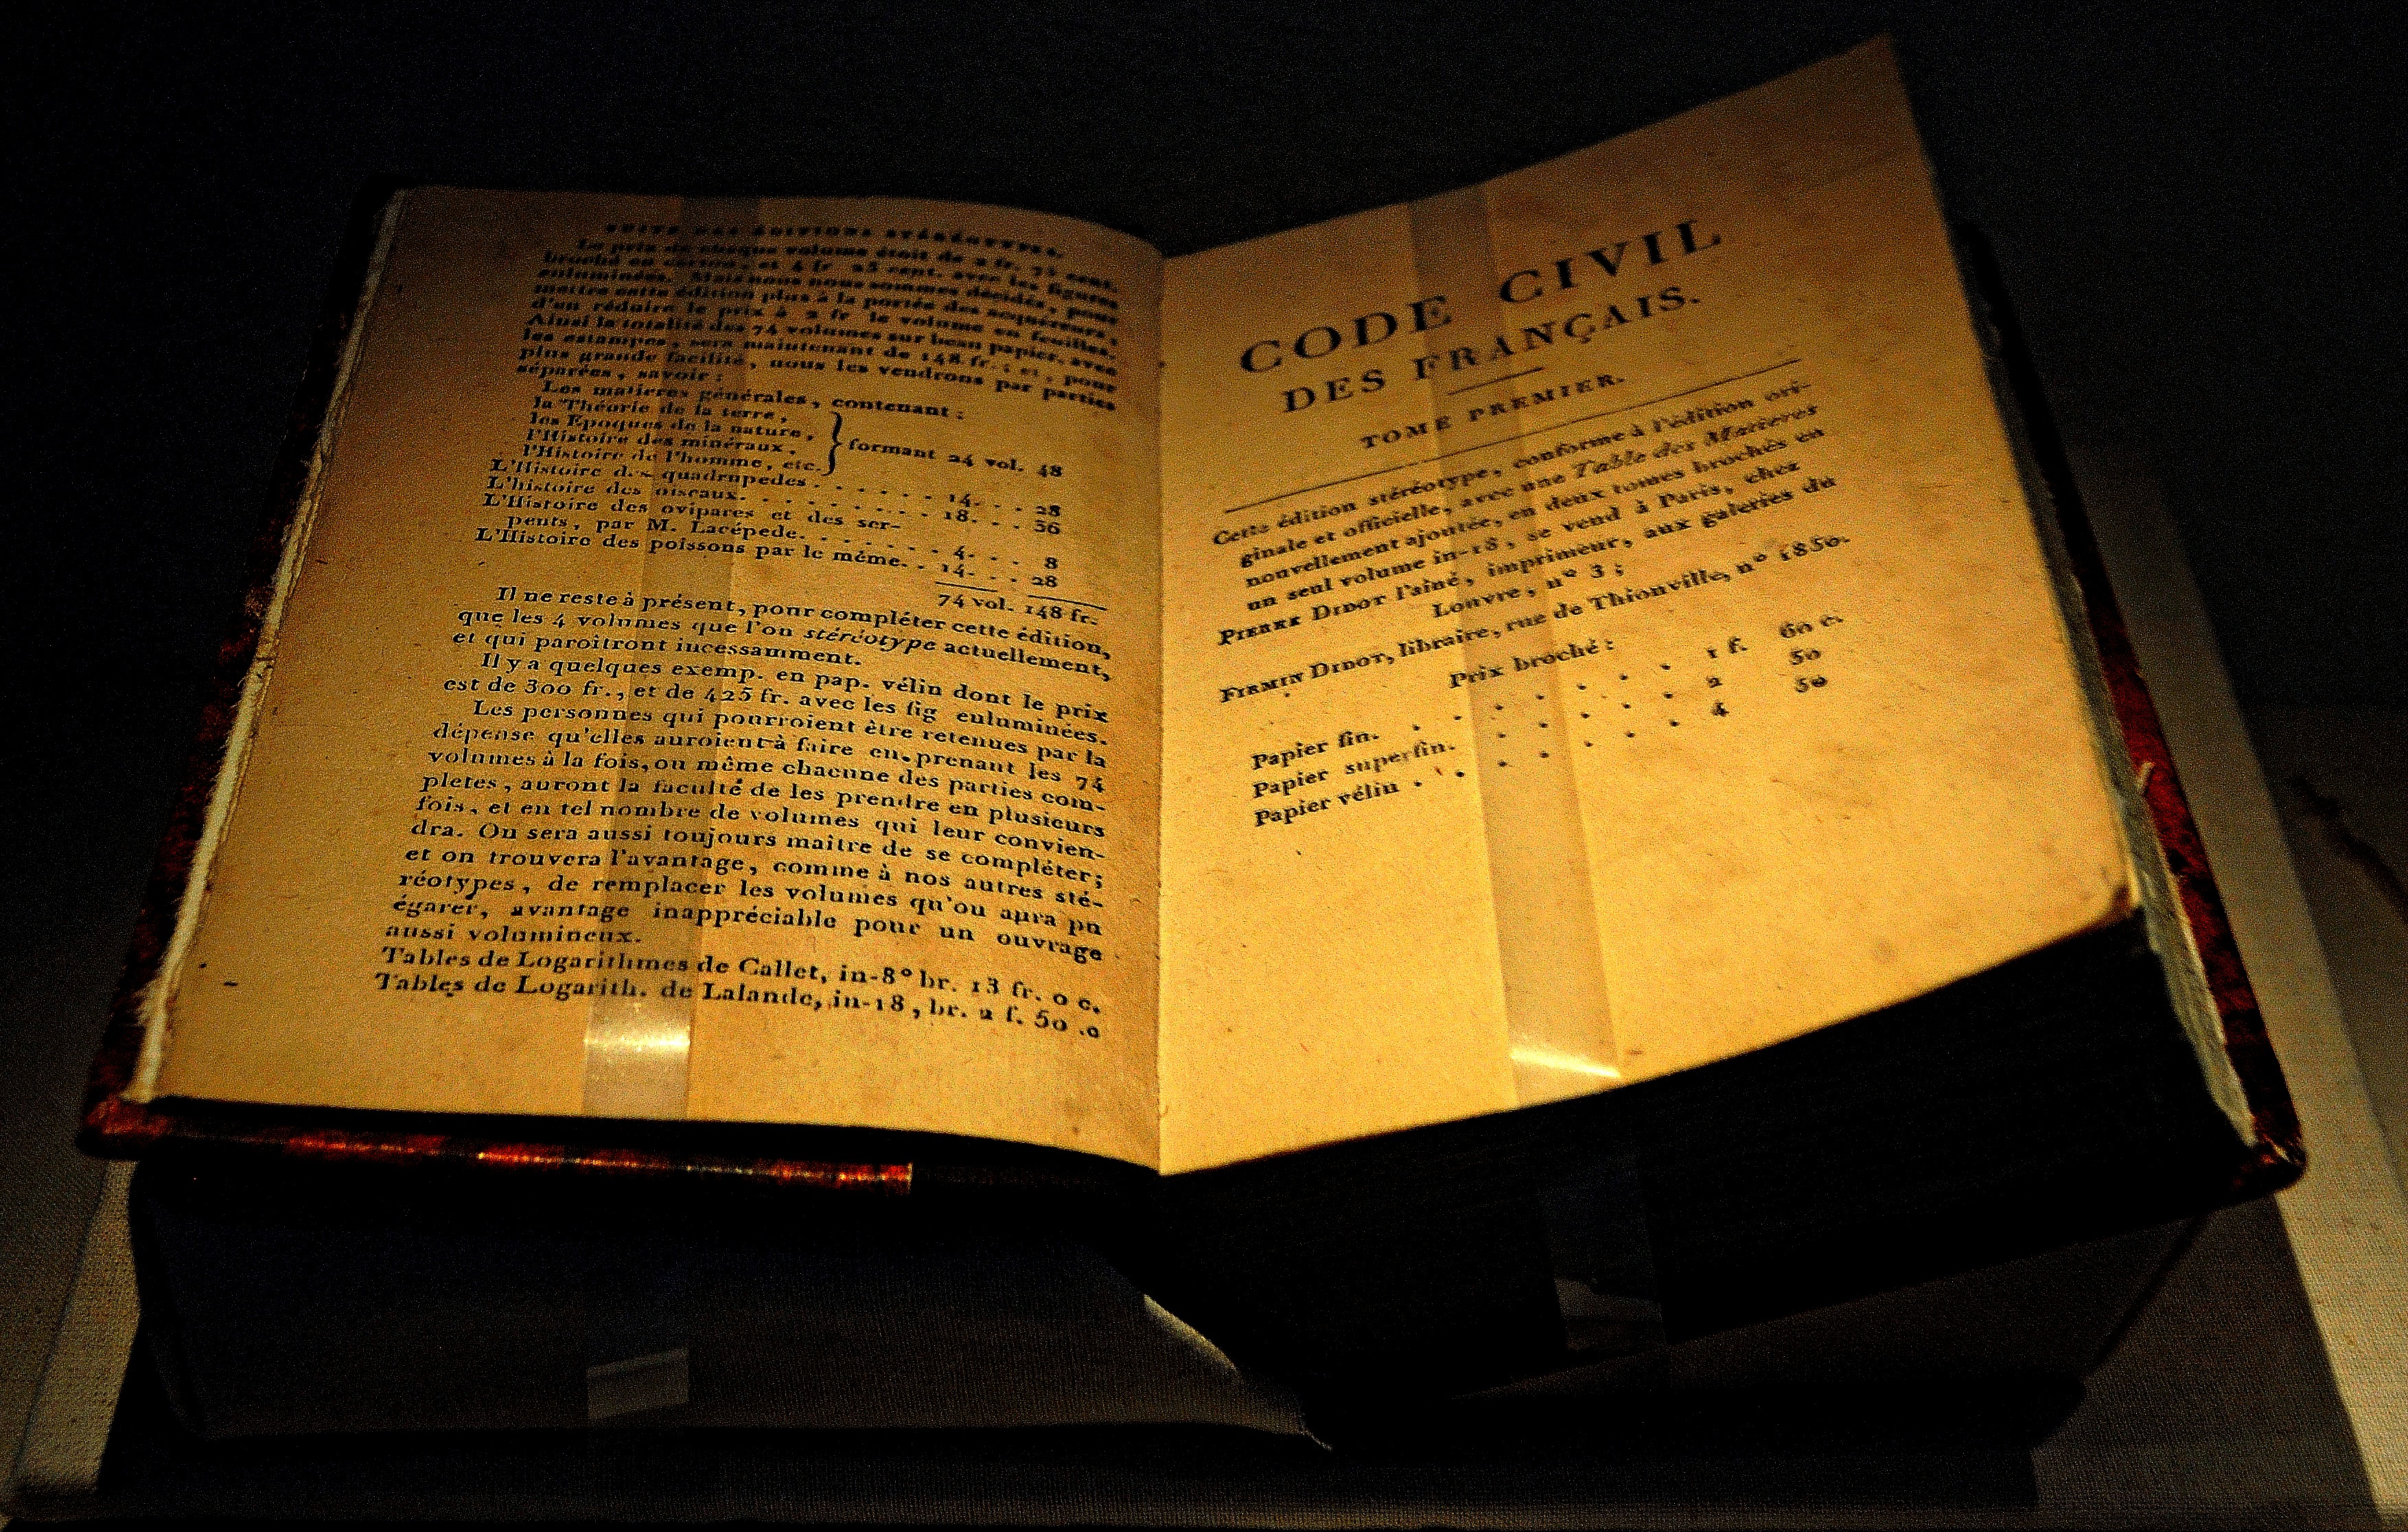 SUITE DES ÉDITIONS STÉRÉOTYPES.
Le prix de chaque volume étoit de 2 fr. 75 cent.
broché en carton, et 4 fr. 25 cent. avec les figures
enluminées. Mais nous nous sommes décidés, pour
mettre cette édition plus à la portée des acquéreurs,
d'en réduire le prix à 2 fr. le volume en feuilles.
Ainsi la totalité des 74 volumes sur beau papier, avec
les estampes, sera maintenant de 148 fr.; et, pour
plus grande facilité, nous les vendrons par parties
séparées, savoir:
Les matieres générales, contenant:
la Théorie de la terre,
les Epoques de la nature,
l'Histoire des minéraux,
l'Histoire de l'homme, etc.
formant 24 vol. 48
L'Histoire des quadrupedes. . . . . . . 14. . . 28
L'histoire des oiseaux. . . . . . . . . 18. . . 36
L'Histoire des ovipares et des ser-
pents, par M. Lacépede. . . . . . . 4. . . 8
L'Histoire des poissons par le même. . 14. . . 28
74 vol. 148 fr.
Il ne reste à présent, pour compléter cette édition,
que les 4 volumes que l'on stéréotype actuellement,
et qui paroîtront incessamment.
Il y a quelques exemp. en pap. vélin dont le prix
est de 300 fr., et de 425 fr. avec les fig enluminées.
Les personnes qui pourroient être retenues par la
dépense qu'elles auroient à faire en prenant les 74
volumes à la fois, ou même chacune des parties com-
pletes, auront la faculté de les prendre en plusieurs
fois, et en tel nombre de volumes qui leur convien-
dra. On sera aussi toujours maître de se compléter;
et on trouvera l'avantage, comme à nos autres sté-
réotypes, de remplacer les volumes qu'on aura pu
égarer, avantage inappréciable pour un ouvrage
aussi volumineux.
Tables de Logarithmes de Callet, in-8° br. 13 fr. 0 c.
Tables de Logarith. de Lalande, in-18, br. 2 f. 50 .c
CODE CIVIL
DES FRANÇAIS.
TOME PREMIER.
Cette édition stéréotype, conforme à l'édition ori-
ginale et officielle, avec une Table des Matieres
nouvellement ajoutée, en deux tomes brochés en
un seul volume in-18, se vend à Paris, chez
PIERRE DIDOT l'aîné, imprimeur, aux galeries du
Louvre, n° 3;
FIRMIN DIDOT, libraire, rue de Thionville, n° 1850.
Prix broché:
Papier fin. . . . . . . . 1 f. 60 c.
Papier superfin. . . . . . 2 50
Papier vélin . . . . . . . 4 50